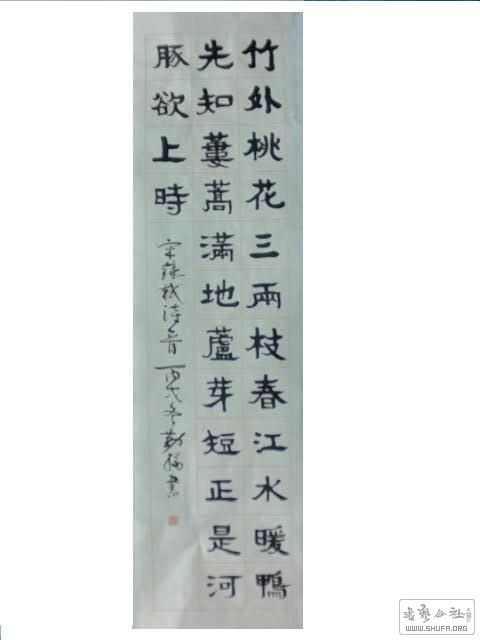 竹外桃花三兩枝春江水暖鴨
先知蔞蒿滿地蘆芽短正是河
豚欲上時
宋蘇軾詩一首 丙戌冬 書
書藝公社
WWW.SHUFA.ORG